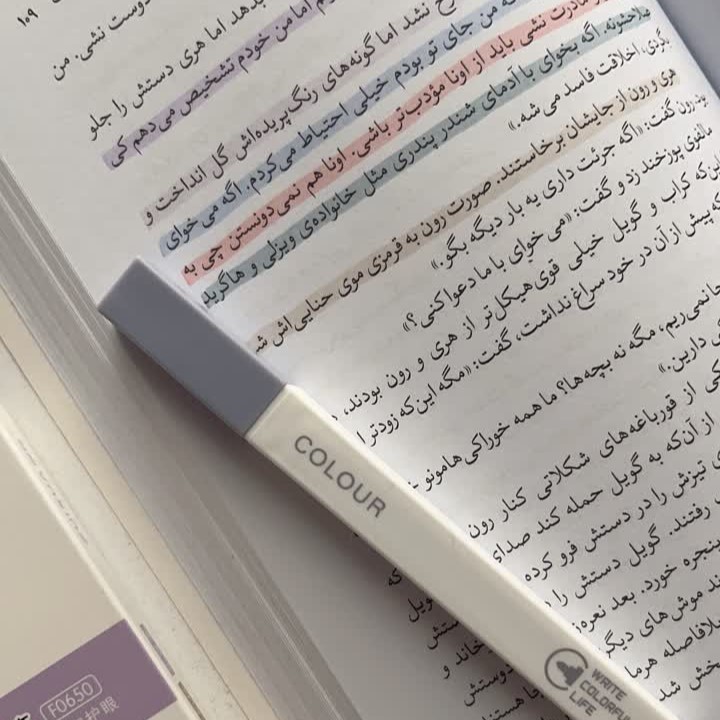 ۱۰۹
دوست نشی. من
بدهد اما هری دستش را جلو
اما من خودم تشخیص می‌دهم کی
نشد اما گونه‌های رنگ‌پریده‌اش گل انداخت و
من جای تو بودم خیلی احتیاط می‌کردم. اگه می‌خوای
نشی باید از اونا مؤدب‌تر باشی. اونا هم نمی‌دونستن چی به
اگه بخوای با آدمای شندر پندری مثل خانواده‌ی ویزلی و هاگرید
بگردی، اخلاقت فاسد می‌شه.»
هری و رون از جایشان برخاستند. صورت رون به قرمزی موی حنایی‌اش
رون گفت: «اگه جرئت داری یه بار دیگه بگو.»
مالفوی پوزخند زد و گفت: «می‌خوای با ما دعوا کنی؟»
کراب و گویل خیلی قوی‌هیکل‌تر از هری و رون بودند،
پیش از آن در خود سراغ نداشت، گفت: «مگه این‌که زودتر
نمی‌ریم، مگه نه بچه‌ها؟ ما همه خوراکی‌هامونو
دارین.»
از قورباغه‌های شکلاتی کنار رون
از آن‌که به گویل حمله کند صدای
تیزش را در دستش فرو کرده
رفتند. گویل دستش را
پنجره خورد. بعد
موش‌های دیگر
بلافاصله
شد
که
گویل
دستش
و
دوستش
COLOUR
WRITE
COLORFUL
LIFE
F0650
护眼